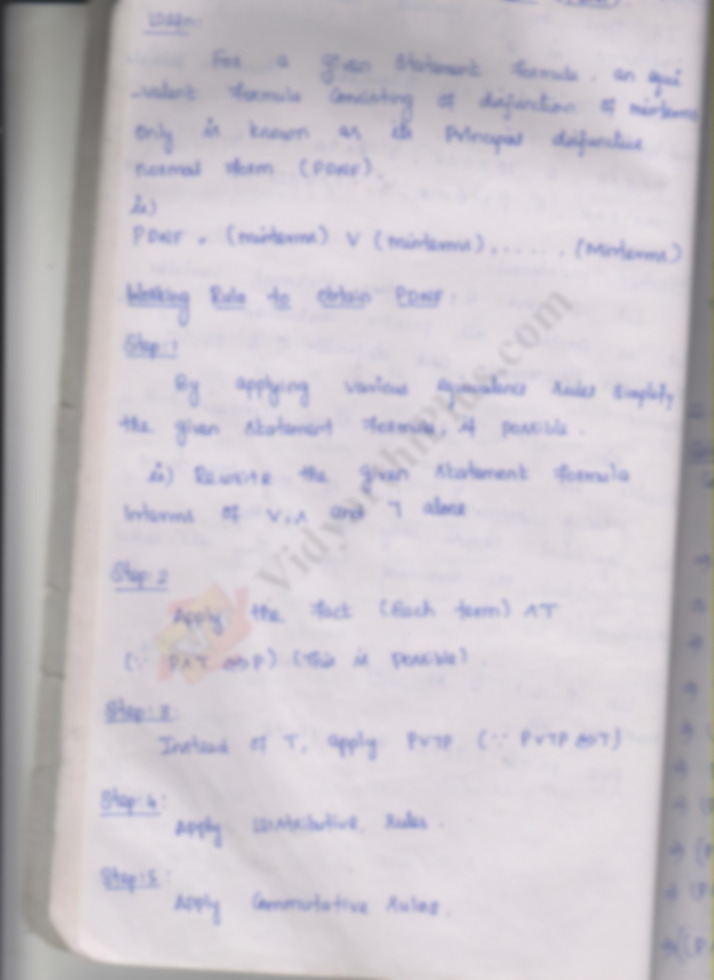 Defn:
For a given Statement formula, an equi
-valent formula consisting of disjunction of minterms
only is known as its Principal disjunctive
normal form (PDNF).
ie)
PDNF = (minterms) V (minterms), ..... (Minterms)
Working Rule to obtain PDNF:
Step:1
By applying various equivalence rules simplify
the given statement formula, if possible.
ie) Rewrite the given statement formula
Interms of V, ∧ and ⅂ alone.
Step:2
Apply the fact (Each term) ∧T
(∵ P∧T ⇔ P) (This is possible).
Step:3:
Instead of T, apply P∨⅂P (∵ P∨⅂P ⇔ T)
Step:4:
Apply Distributive Rules.
Step:5:
Apply Commutative Rules.
VidyarthiPlus.com